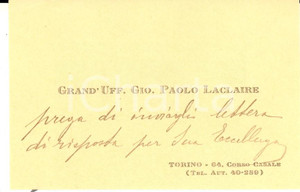 GRAND'UFF. GIO. PAOLO LACLAIRE
prega di inviargli lettera
di risposta per Sua Eccellenza
TORINO - 64, CORSO CASALE
(TEL. AUT. 40-259)